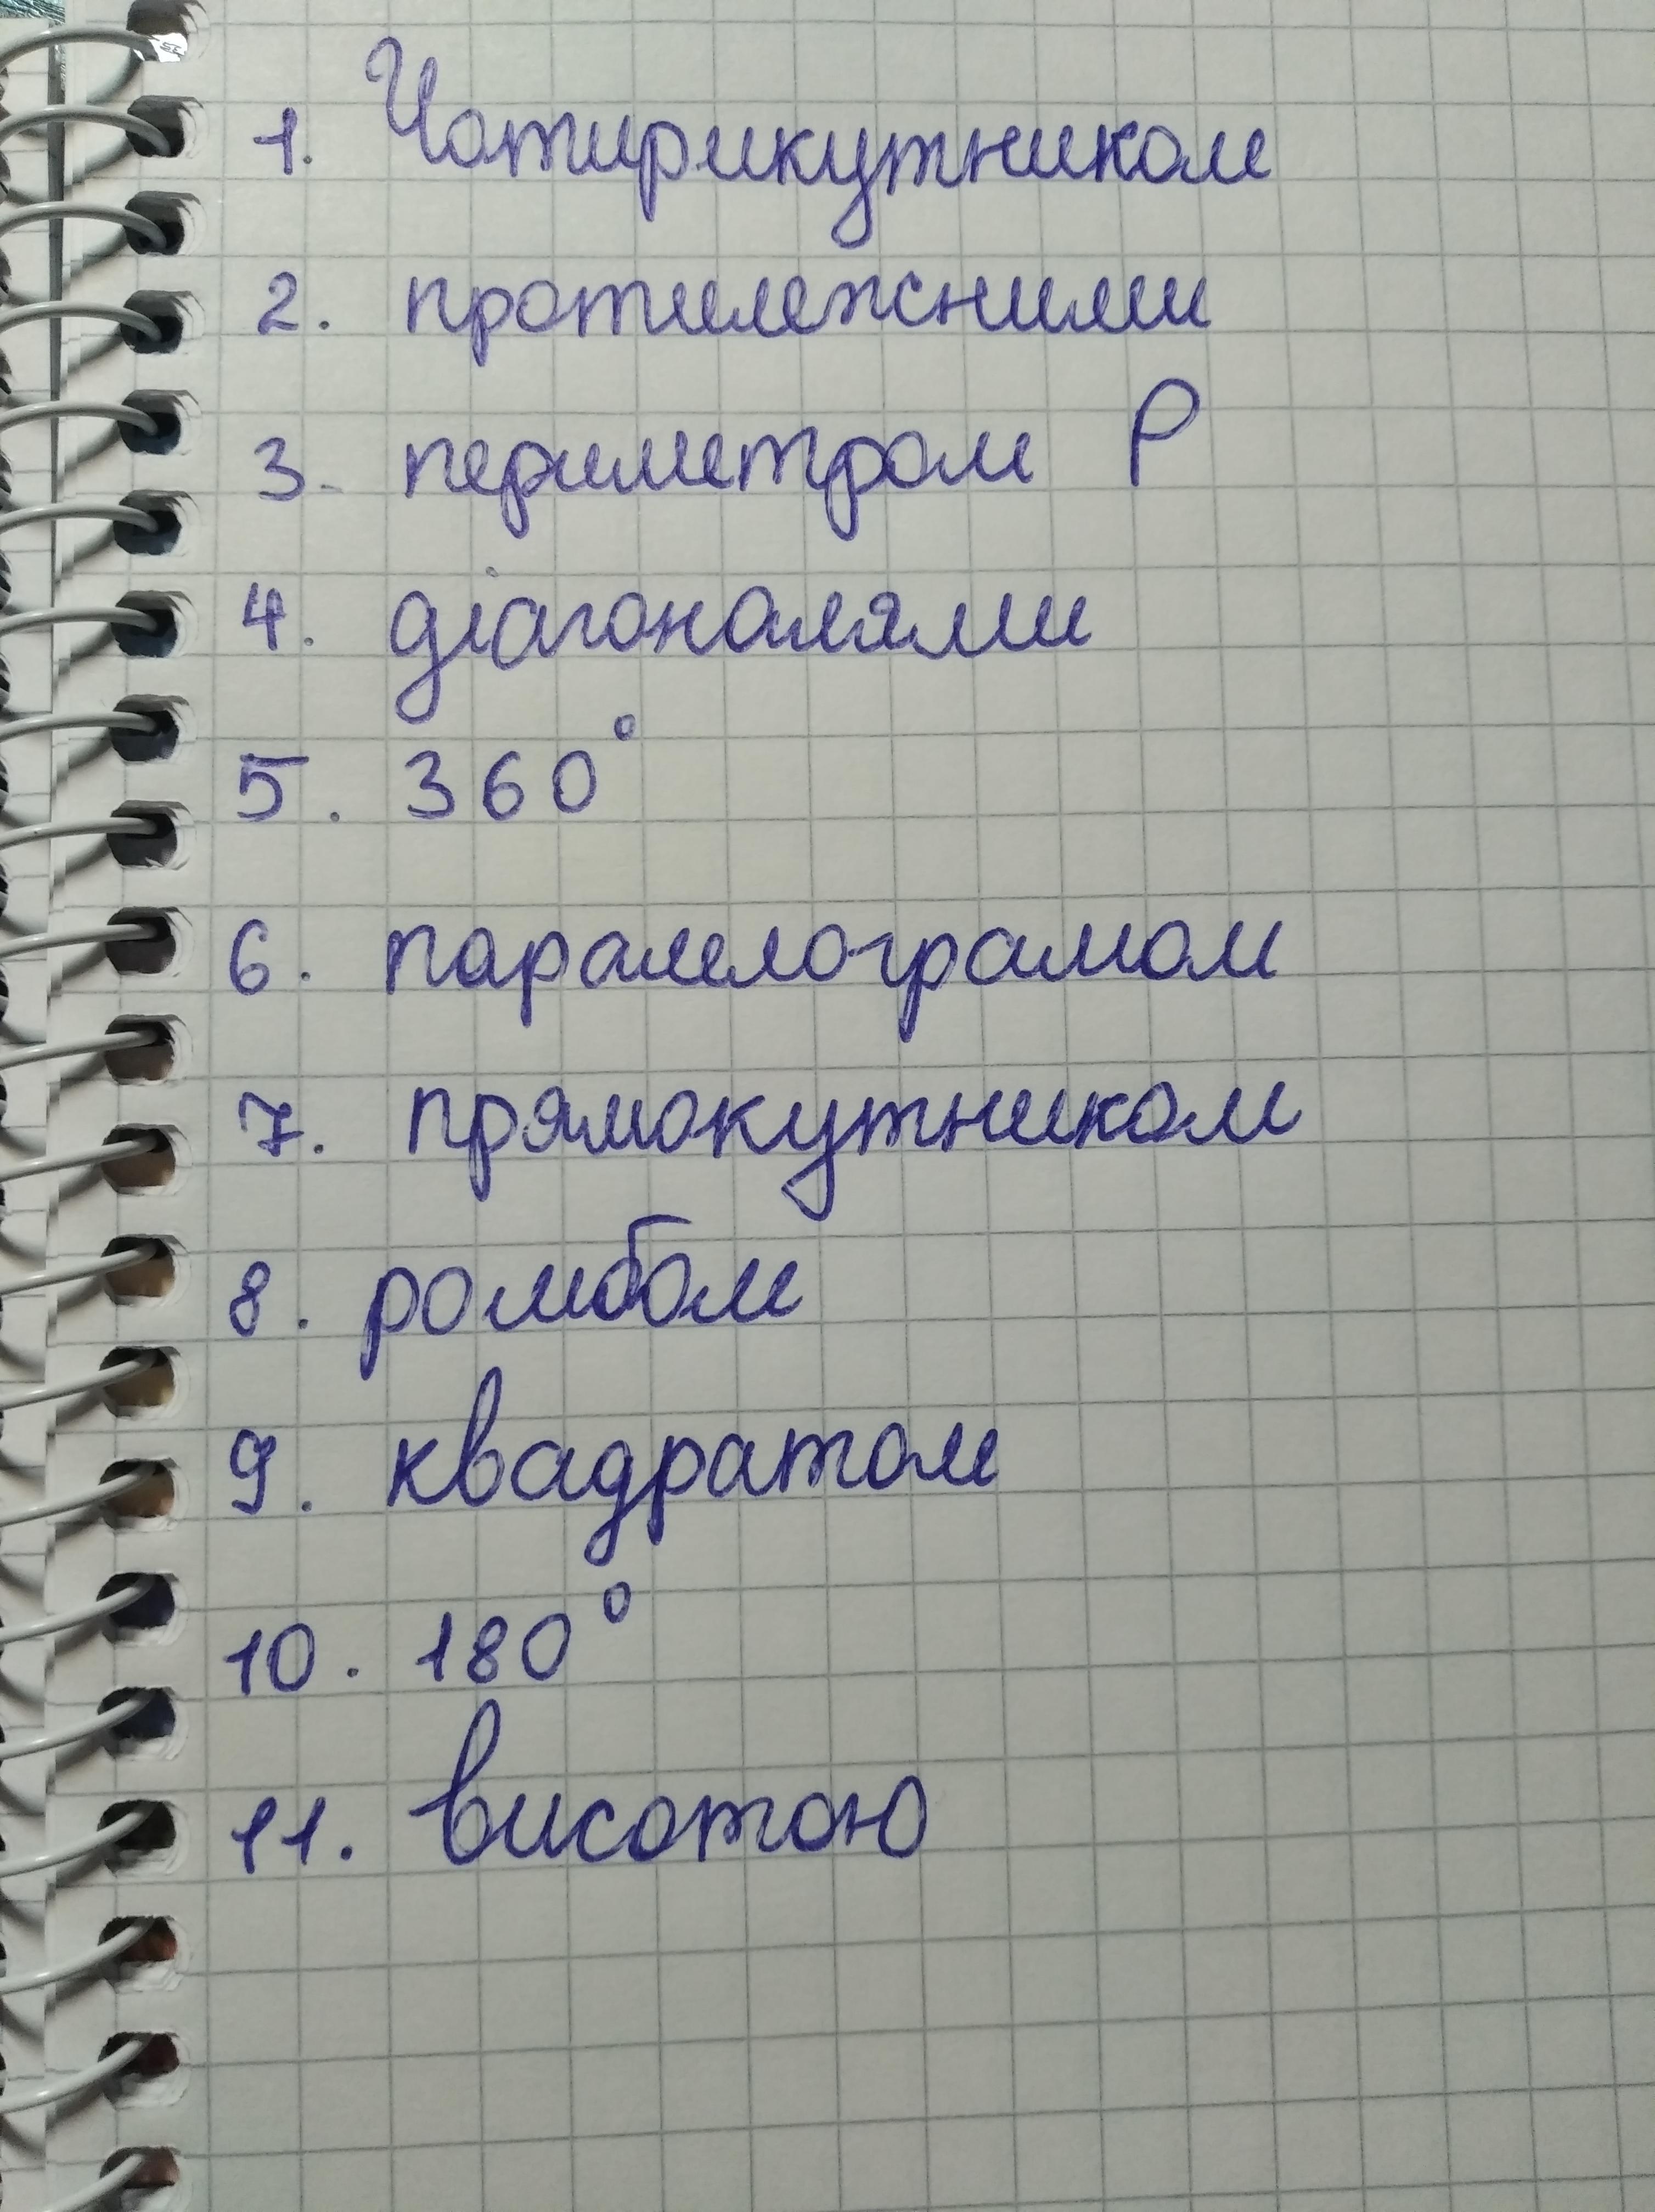 1. Чотирикутником
2. протилежними
3. периметром P
4. діагоналями
5. 360°
6. паралелограмом
7. прямокутником
8. ромбом
9. квадратом
10. 180°
11. висотою